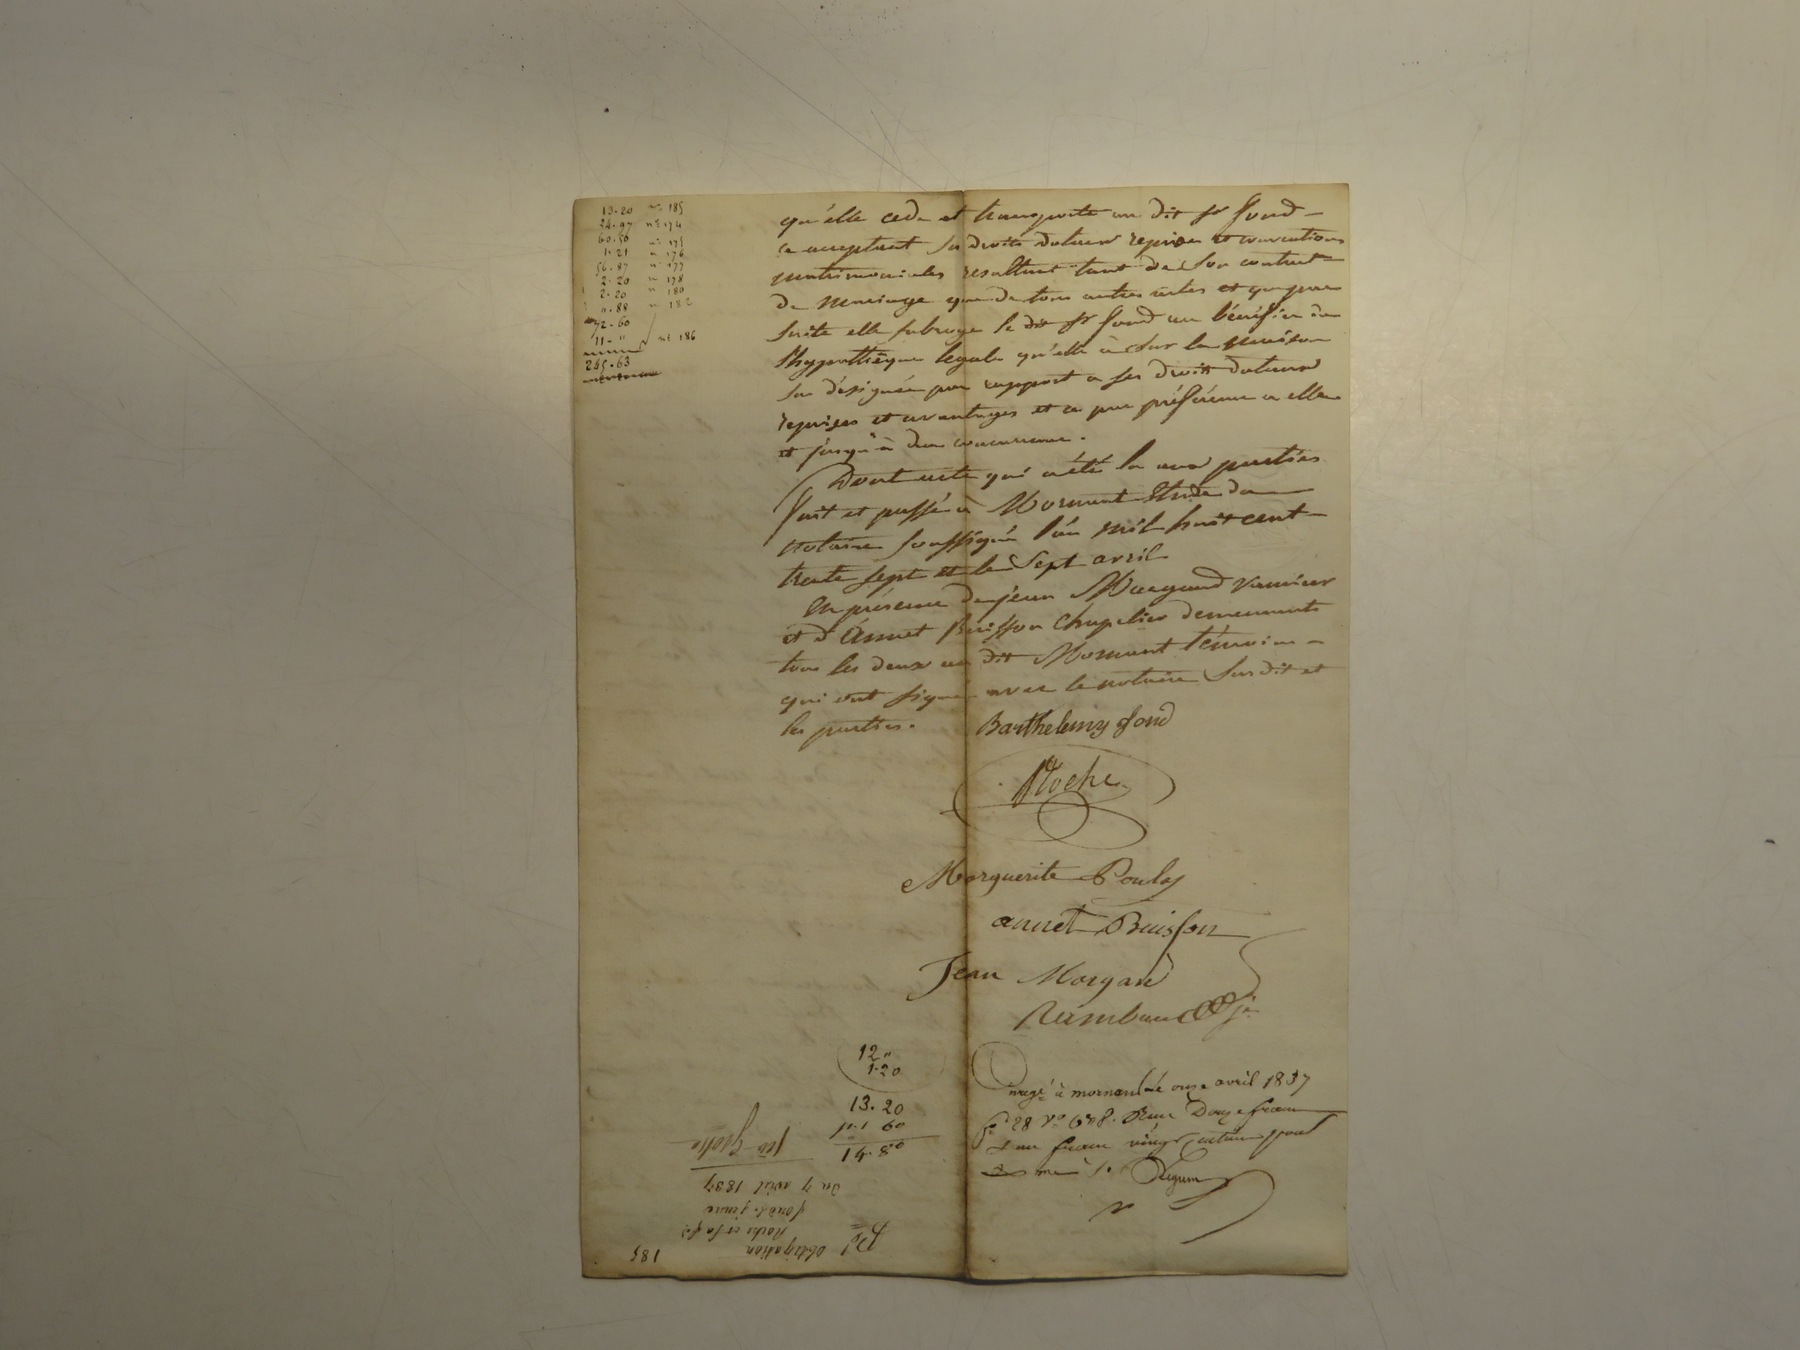 13.20 n° 185
34.97 n° 174
60.50 n° 175
1.21 n 176
56.87 n 177
2.20 n 178
2.20 n 180
0.88 n 182
72-60
11-" n° 186
245.63
qu'elle cede et transporte au dit sr fond
ce acceptant ses droits dotaux reprises et conventions
matrimoniales resultant tant de son contrat
de mariage que de tous autres actes et que par
suite elle subroge le dit sr fond au bénéfice de
l'hypothèque legale qu'elle a sur la maison
sus désignée par rapport a ses droits dotaux
reprises et avantages et ce par préférence a elle
et jusqu'à due concurrence.
Dont acte qui a été lu aux parties
fait et passé à Mornant Etude du
notaire soussigné l'an mil huit cent
trente sept et le Sept avril
En présence de jean Morgand
et d'Annet Buisson Chapelier demeurants
tous les deux au dit Mornant témoins
qui ont signé avec le notaire susdit et
les parties.
Barthelemy fond
Roche
Marguerite Poulas
annet Buisson
Jean Morgand
Rambaud je
Enregé à mornant le onze avril 1837
fo 28 Vo C 7 8. Reçu Douze francs
et un franc vingt centimes pour
12"
1.20
13.20
1.60
14.80
185
Pd obligation
Roche et sa fe
fond. jeune
du 7 avril 1837